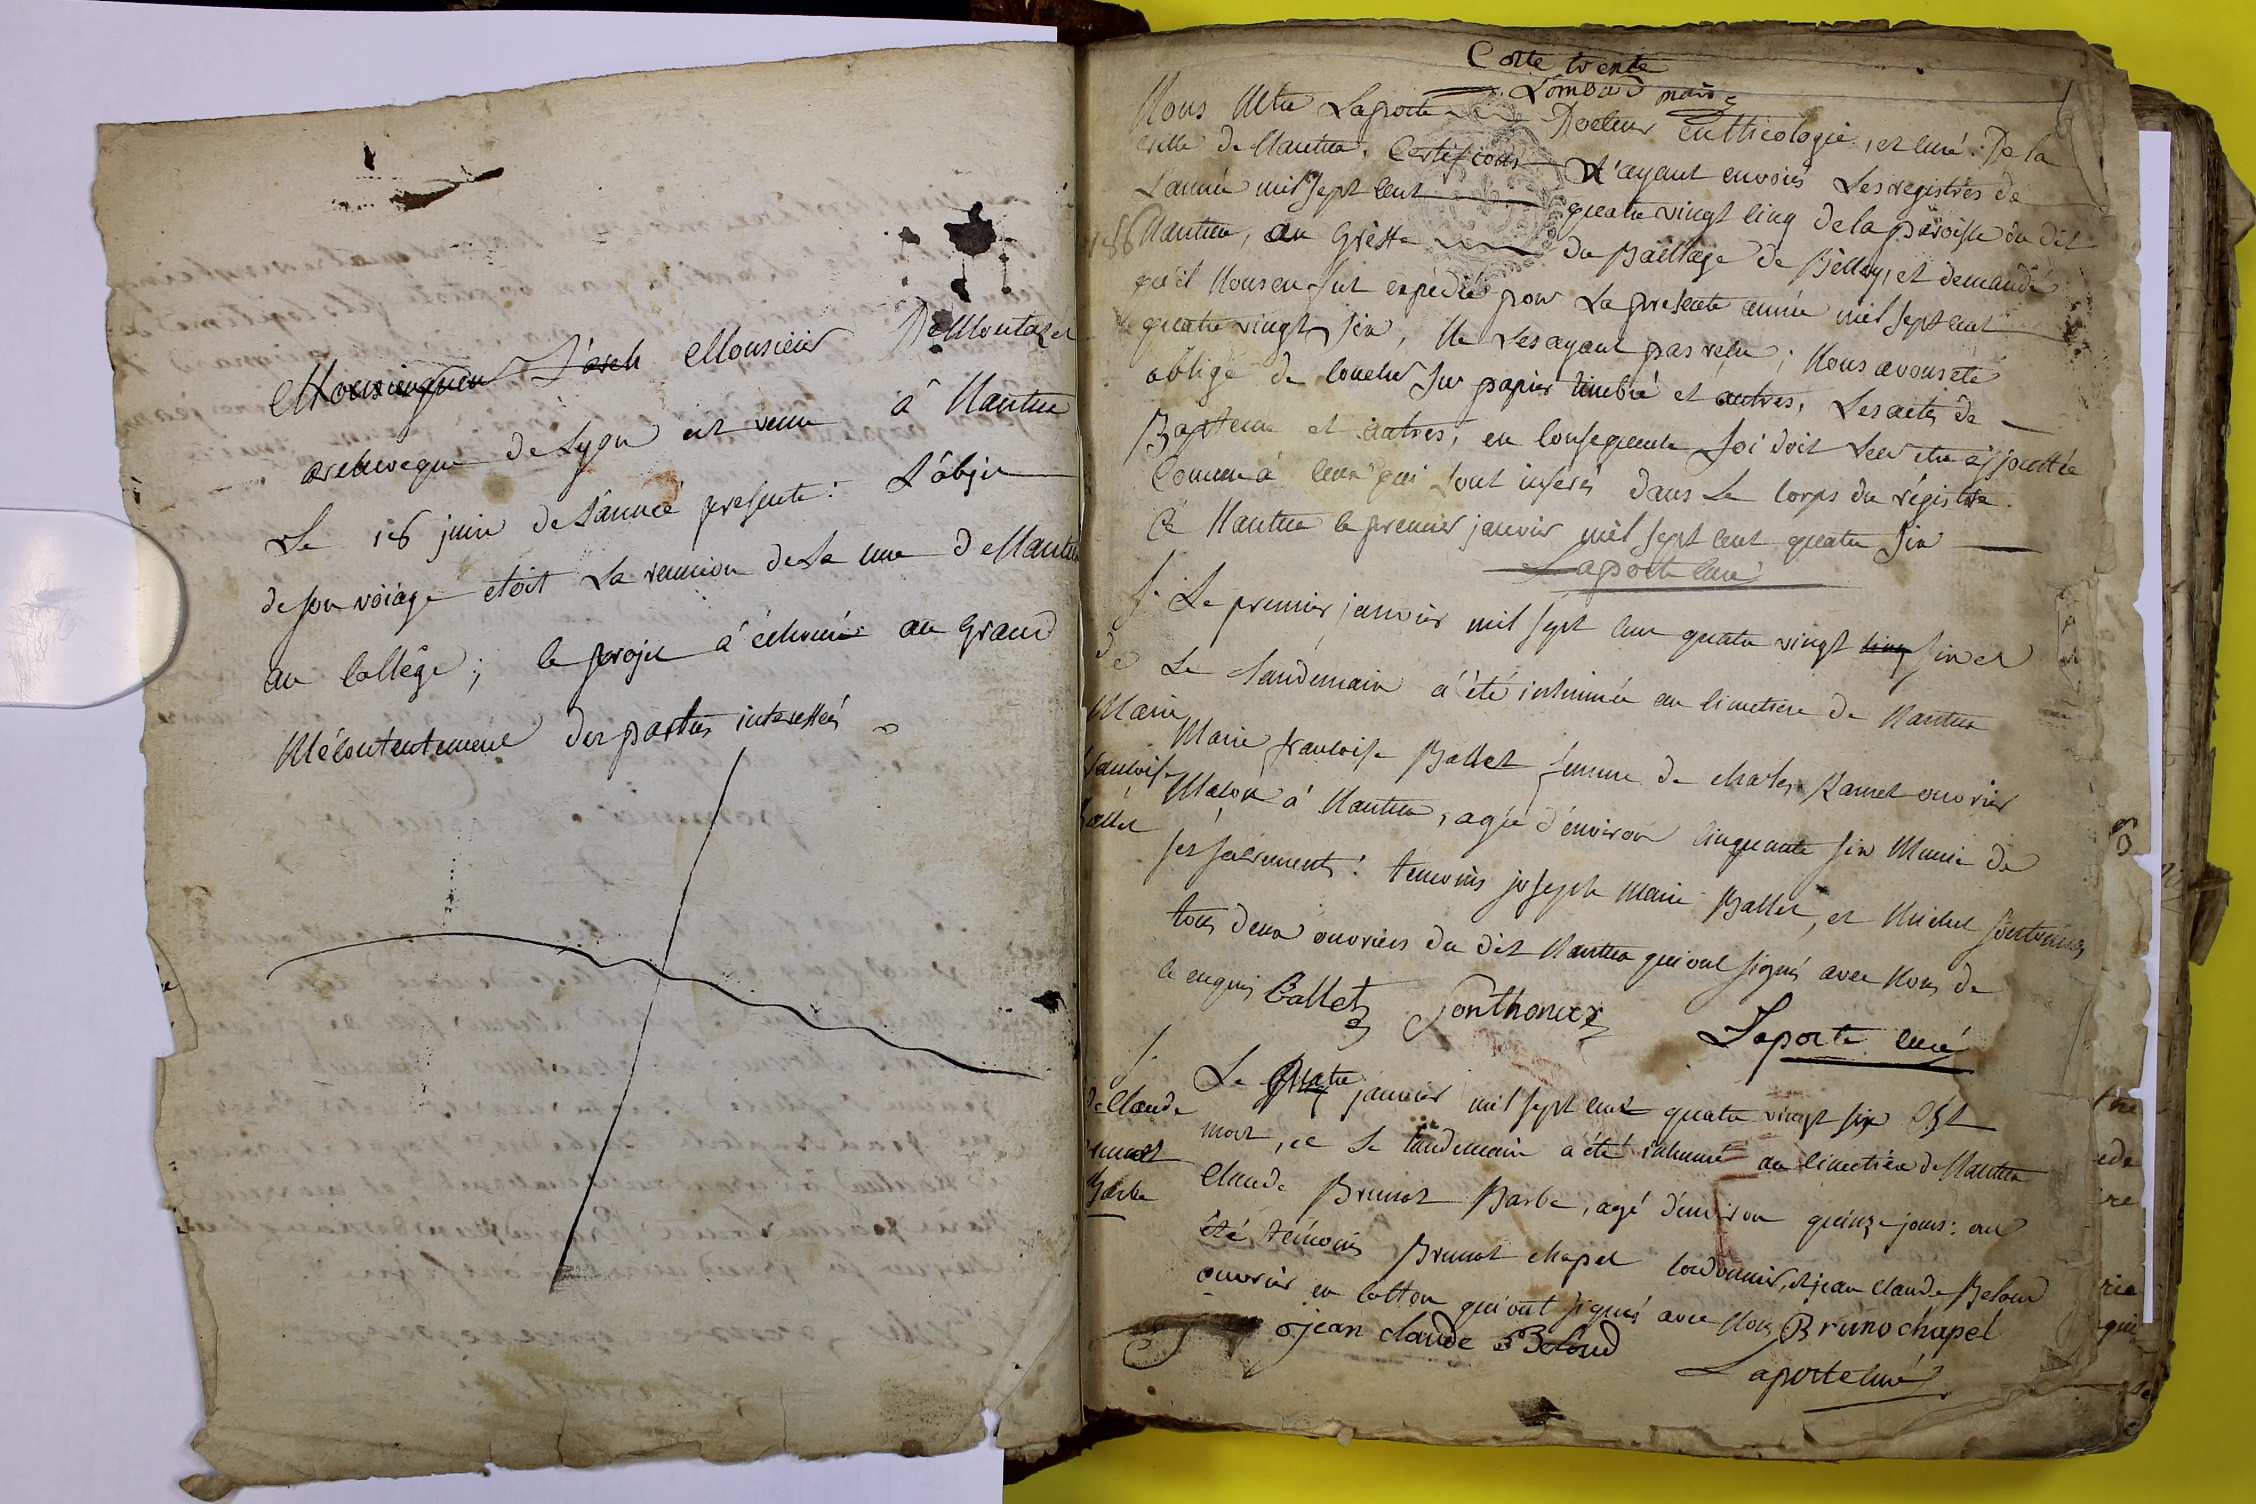 Monseigneur L'arch Monsieur De Montazet
archeveque de Lyon est venu à Nantua
Le 16 juin de L'année presente: L'objet
de son voiage etoit La reunion de La cure de Nantua
au College; le projet à échoué au Grand
Mécontentement des parties interessées
Cotte trente
Lombard maire
Nous Mtre Laporte Docteur en theologie, et curé De la
ville de Nantua, Certifions N'ayant envoiés Les registres de
L'année mil sept cent quatre vingt cinq de la paroisse du dit
Nantua, au Greffe du Bailliage de Belley, et demandé
qu'il Nous en fut expédié pour La presente année mil sept cent
quatre vingt six, Ne Les ayant pas reçu; Nous avons été
obligé de coucher sur papier timbré et autres, Les actes de
Bapteme et autres, en consequence foi doit Leur etre ajouttée
Comme à ceux qui sont inserés dans Le corps du régistre
à Nantua le premier janvier mil sept cent quatre six
Laporte curé
1786
S. Le premier janvier mil sept cent quatre vingt cinq six et
Le Landemain a été inhumée au cimetiere de Nantua
Marie francoise Ballet femme de charles Ramet ouvrier
Maçon à Nantua, agée d'environ cinquante six Munie de
ses sacrements: temoins joseph Marie Ballet, et Michel fonthonax
tous deux ouvriers du dit Nantua qui ont signés avec Nous de
ce enquis Ballet fonthonax
Laporte curé
de
Marie
francoise
Ballet
S.
Le quatre janvier mil sept cent quatre vingt six Est
mort, et Le Landemain a été inhumé au cimetière de Nantua
Claude Brunot Barbe, agé d'environ quinze jours: ont
été témoins Brunot chapel cordonnier, et jean claude Beloud
ouvrier en cotton qui ont signés avec Nous Bruno chapel
jean claude Beloud
Laporte curé
de Claude
Brunot
Barbe